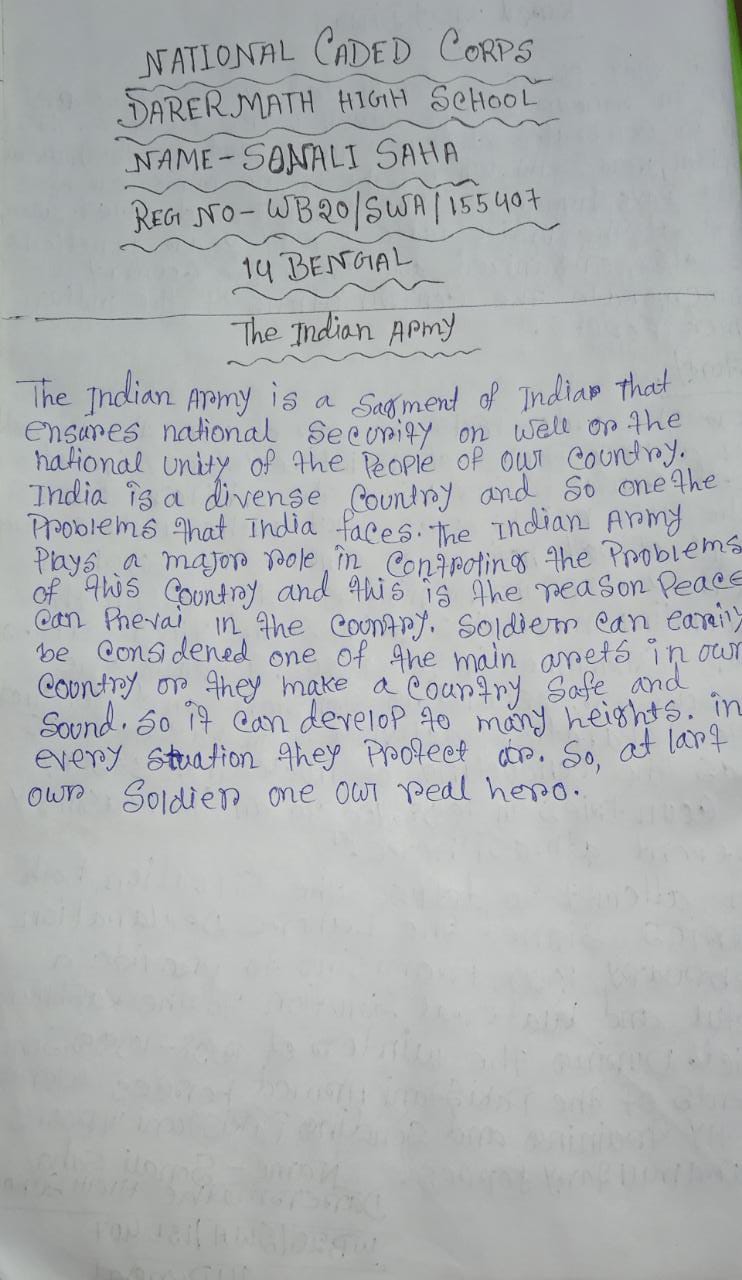 NATIONAL CADED CORPS
DARERMATH HIGH SCHOOL
NAME-SONALI SAHA
REG NO-WB20/SWA/155407
14 BENGAL
The Indian Army
The Indian Army is a Sagment of Indian that
ensures national Security on well or the
national unity of the People of our Country.
India is a divense Country and so one the
Problems that India faces. The Indian Army
Plays a major role in Controting the Problems
of this Country and this is the reason Peace
Can Prevai in the Country. Soldiers Can earily
be Considened one of the main arrets in our
Country or they make a Country Safe and
Sound. So it Can develop to many heights. in
every Stuation they Protect So, at lart
own Soldier one our real hero.